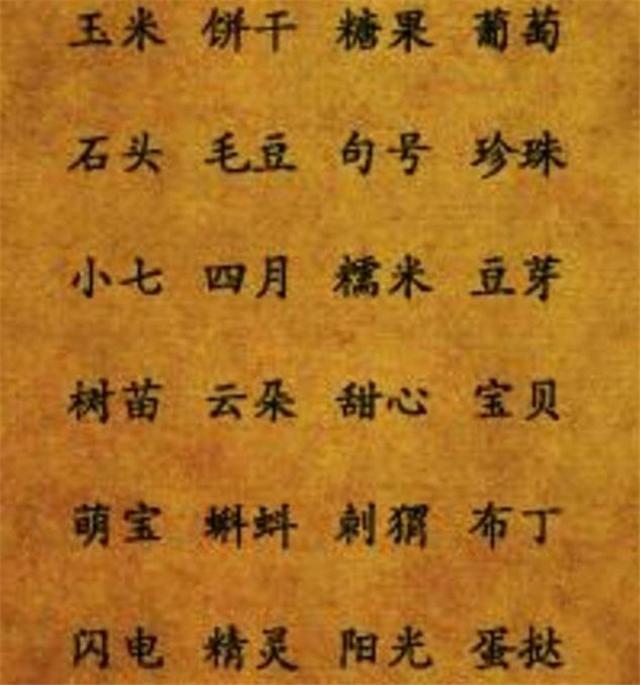 玉米 饼干 糖果 葡萄
石头 毛豆 句号 珍珠
小七 四月 糯米 豆芽
树苗 云朵 甜心 宝贝
萌宝 蝌蚪 刺猬 布丁
闪电 精灵 阳光 蛋挞